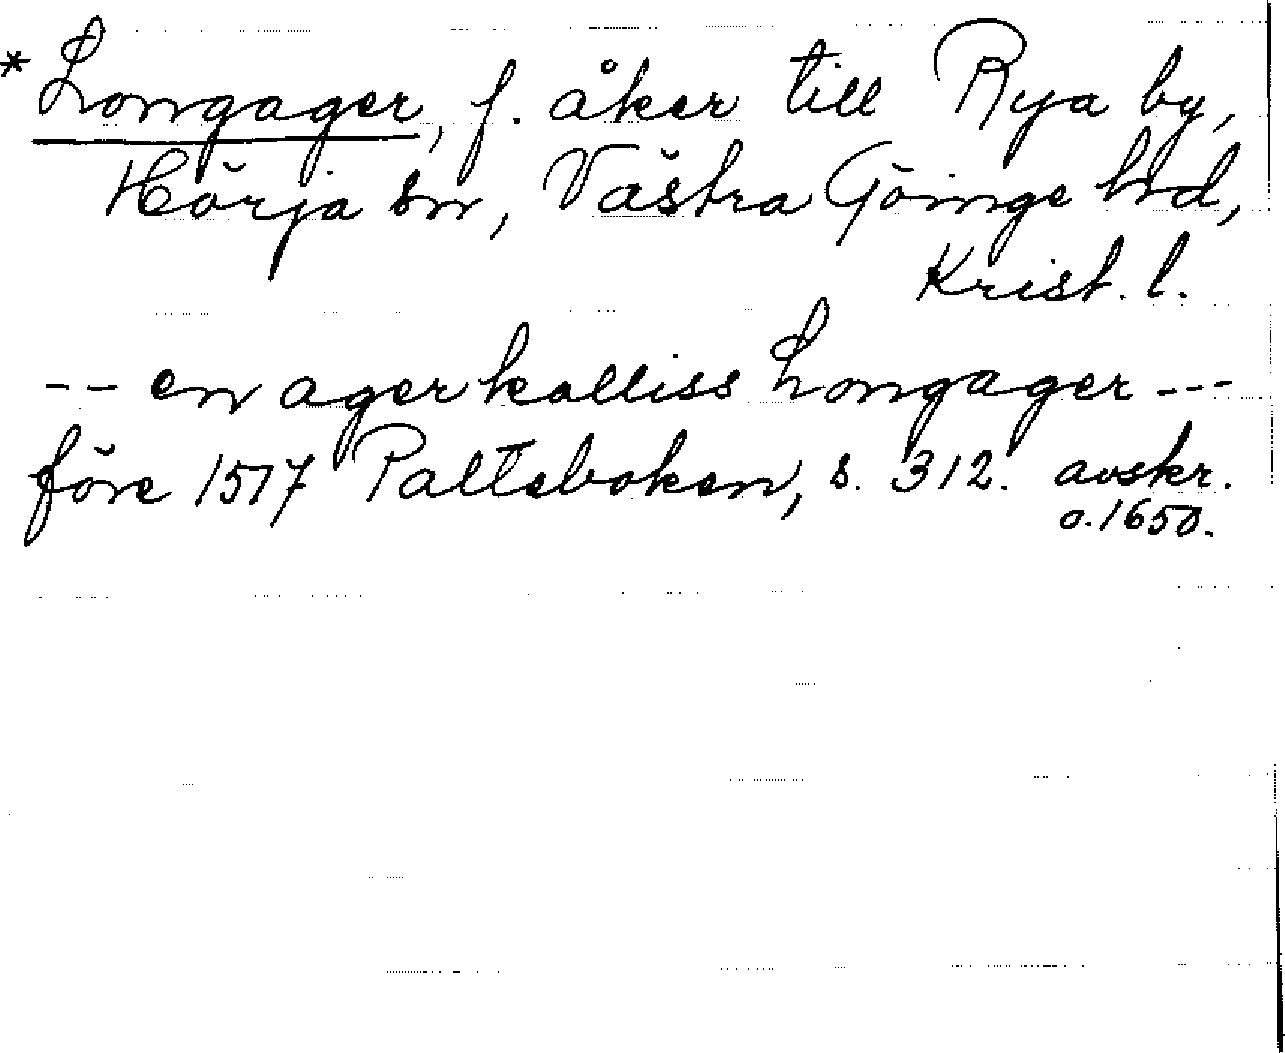 * Longager, f. åker till Rya by,
Hörja sn, Västra Göinge hrd,
Krist. l.
-- en ager kalliss Longager ---
före 1517 Palteboken, s. 312. avskr.
o. 1650.